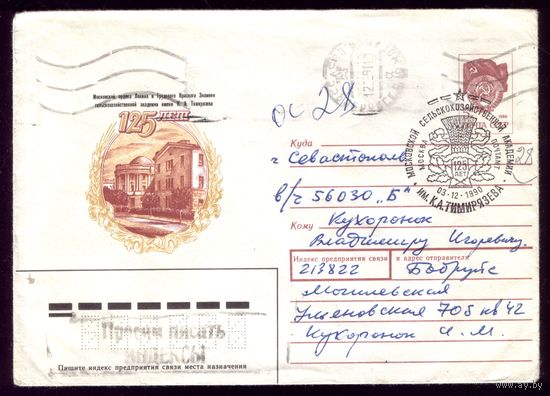 Московский ордена Ленина и Трудового Красного Знамени
сельскохозяйственной академии имени К. А. Тимирязева
125 лет
ос 28
Куда
г Севастополь
в/ч 56030 „Б“
Кому
Кухоронок
Владимиру Игоревичу
Индекс предприятия связи
и адрес отправителя
213822
Бобруйск
Могилевская
Ульяновская 70б кв 42
Кухоронок И. М.
МОСКОВСКОЙ СЕЛЬСКОХОЗЯЙСТВЕННОЙ АКАДЕМИИ
МОСКВА
ПОЧТАМТ
125
ЛЕТ
03-12-1990
ИМ. К.А. ТИМИРЯЗЕВА
28
Просим писать
индексы
Пишите индекс предприятия связи места назначения
av.by